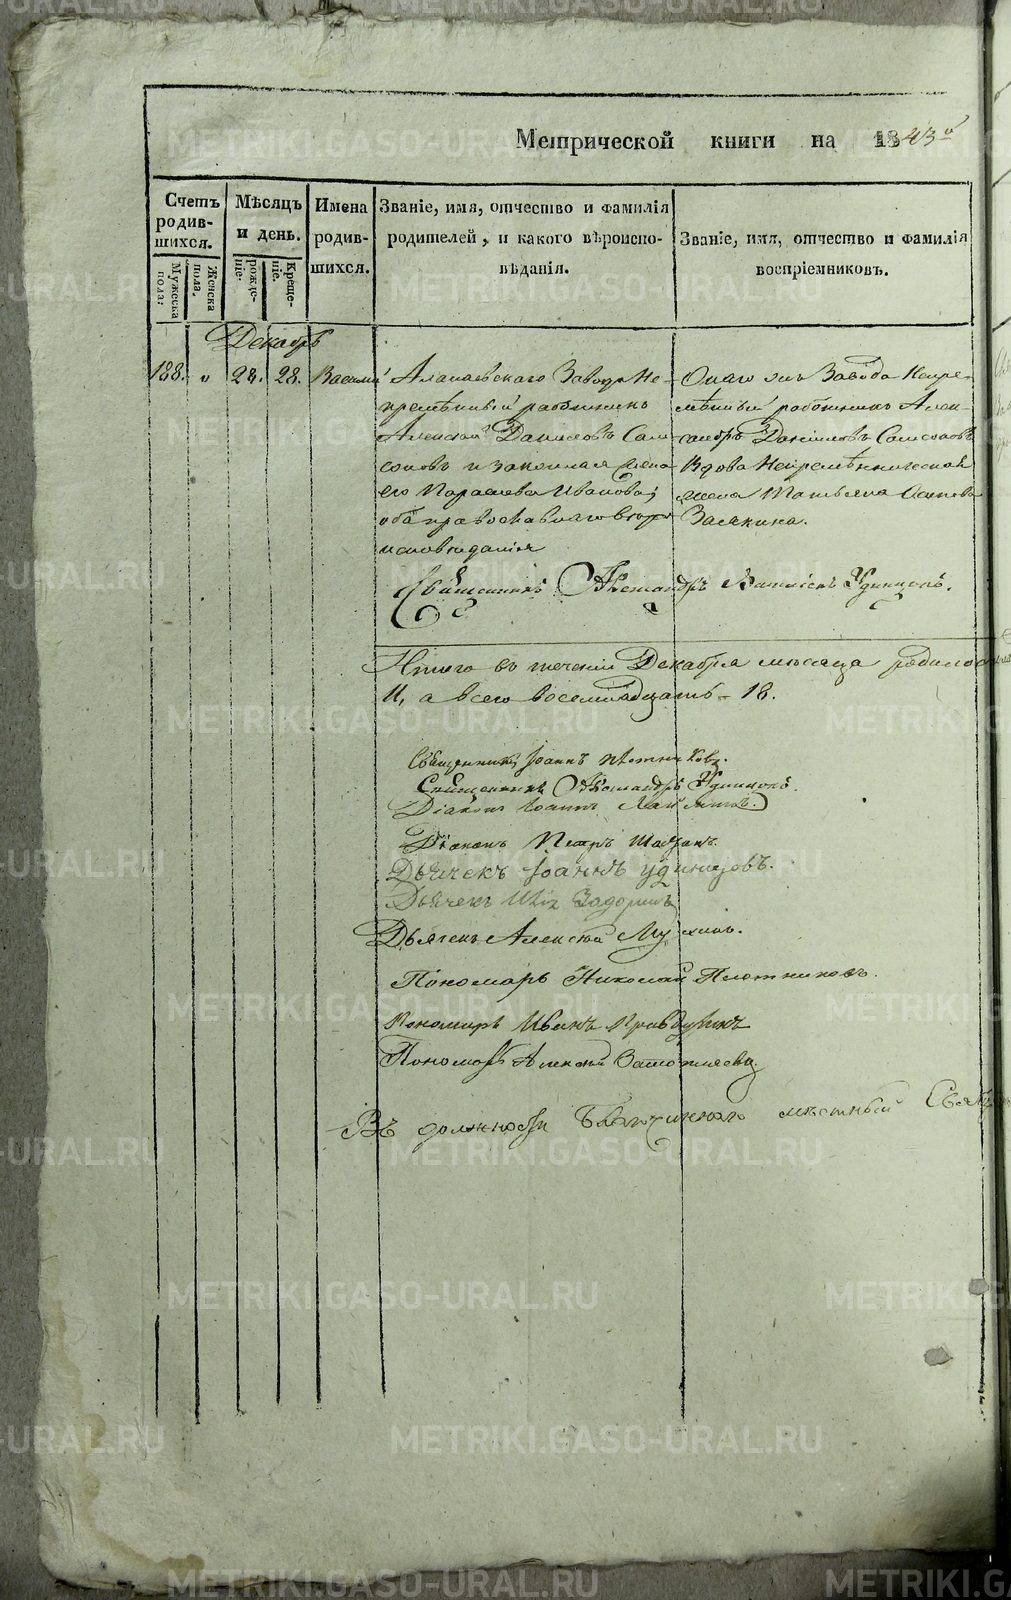 Метрической книги на 1843й
Счетъ родив-шихся.
Мужеска пола:
Женска пола.
Мѣсяцъ и день.
рожде-ніе.
Креще-ніе.
Имена родив-шихся.
Званіе, имя, отчество и фамилія
родителей, и какого вѣроиспо-
вѣданія.
Званіе, имя, отчество и фамилія
воспріемниковъ.
Декабрь
188. " 24. 28. Василій
Алапаевскаго Завода Не-
премѣнный работникъ
Алексѣй Даниловъ Сам-
соновъ и законная жена
его Параскева Иванова;
оба православнаго вѣро
исповѣданія
Онаго жъ Завода Непре-
мѣнный работникъ Алек-
сандръ Даниловъ Самсоновъ
Вдова Непремѣнническая
жена Татьяна Осипова
Засякина.
Священникъ Александръ Удинцовъ.
Итого въ теченіи Декабря мѣсяца родилось
11, а всего восемнадцать - 18.
Священникъ Іоаннъ Плотниковъ.
Священникъ Александръ Удинцовъ.
Діаконъ Іоаннъ
Діаконъ Петръ
Дьячекъ Іоаннъ Удинцовъ.
Дьячекъ Задоринъ
Дьячекъ Алексѣй Мухинъ.
Пономарь Николай Плотниковъ.
Пономарь Иванъ
Пономарь Алексѣй Замотаевъ.
Въ должности Благочиннаго мѣстный
METRIKI.GASO-URAL.RU